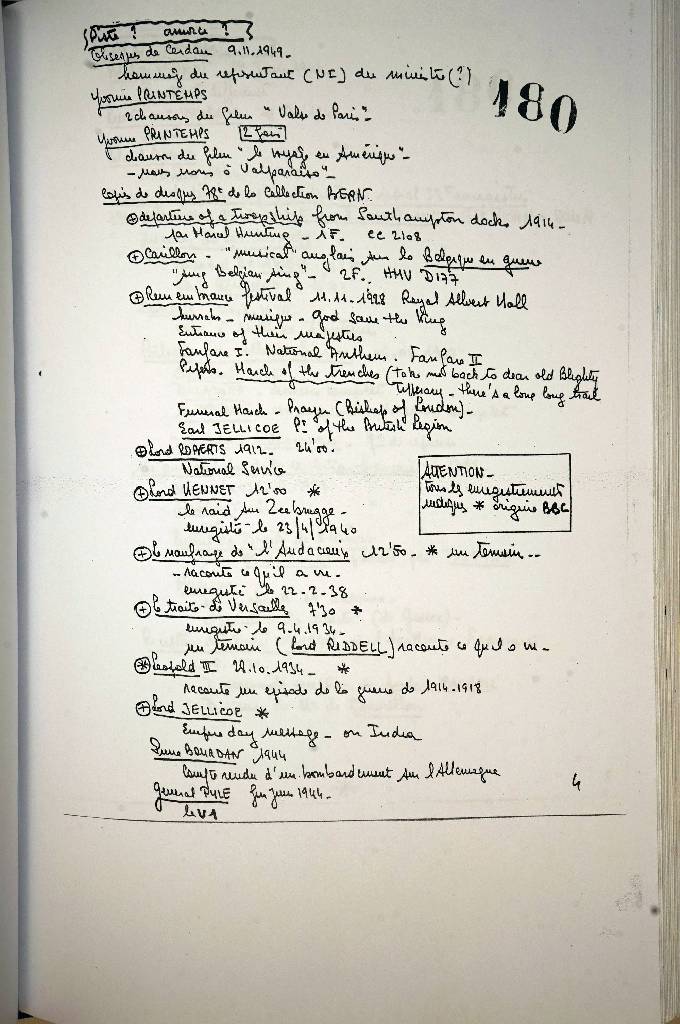 Piste ? amorce ?
180
Obsèques de Cerdan 9.11.1949.
hommage du représentant (NI) du ministre (?)
Yvonne PRINTEMPS
2 chansons du film "Valse de Paris".
Yvonne PRINTEMPS 2 faces
chanson du film "le voyage en Amérique".
- nous irons à Valparaiso".
Copies de disques 78t de la collection BERN.
⊕ departure of a troopship from Southampton docks 1914.
par Marcel Hunting. 1F. CC 2108
⊕ Carillon - "musical" anglais sur la Belgique en guerre
"sing Belgian sing". 2F. HMV D177
⊕ Remembrance festival 11.11.1928 Royal Albert Hall
hurrahs - musique - God save the King
Entrance of their majesties
Fanfare I. National Anthem. Fanfare II
Pipers. March of the trenches (take me back to dear old Blighty
Tipperary - there's a long long trail
Funeral March - Prayer (Bishop of London).
Earl JELLICOE Pt of the British Legion
⊕ Lord ROBERTS 1912. 24'00.
National Service
ATTENTION.
tous les enregistrements
indiqués * origine BBC
⊕ Lord KENNET 12'00 *
le raid sur Zeebrugge.
enregistré le 23/4/1940
⊕ le naufrage de "l'Audacieux" 12'50. * un témoin ..
.. raconte ce qu'il a vu.
enregistré le 22-2-38
⊕ le traité de Versailles 7'30 *
enregistré le 9.4.1934.
un témoin (Lord RIDDELL) raconte ce qu'il a vu.
⊕ Léopold III 28.10.1934. *
raconte un épisode de la guerre de 1914-1918
⊕ Lord JELLICOE *
Empire day message - on India
BOURDAN 1944
Compte rendu d'un bombardement sur l'Allemagne
General PYLE fin juin 1944.
le V1
4